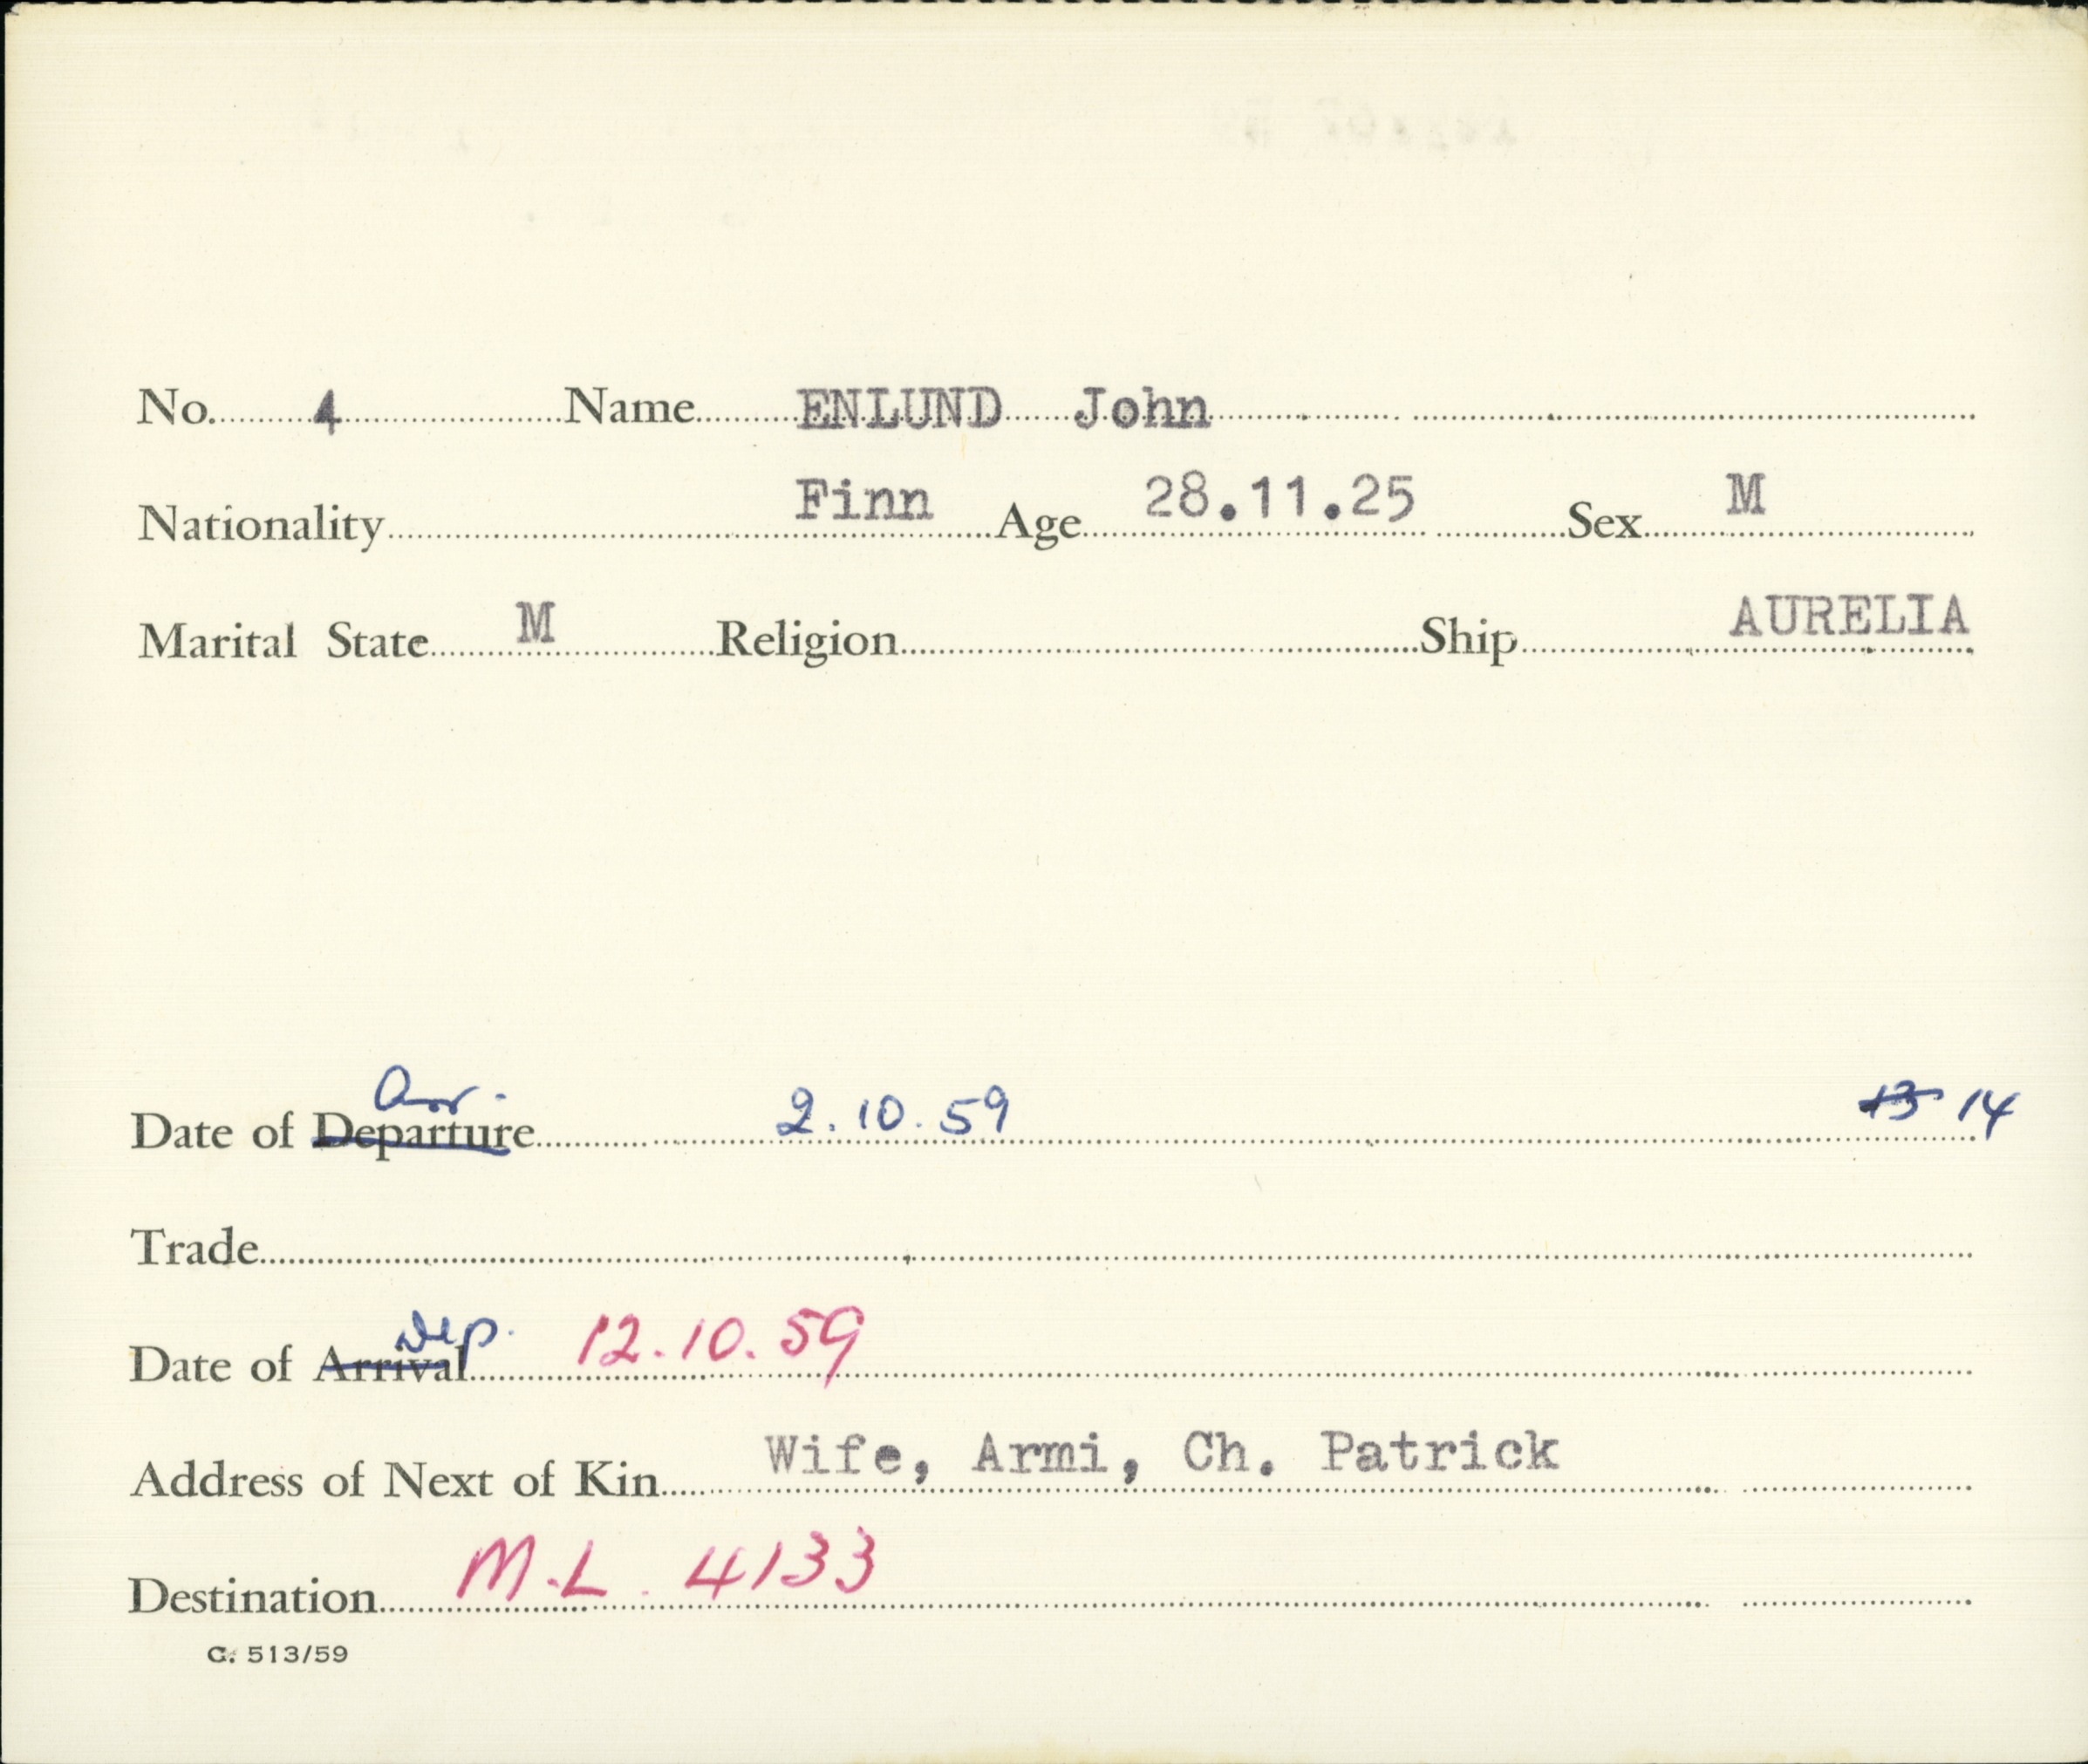 No. 4 Name ENLUND John
Nationality Finn Age 28.11.25 Sex M
Marital State M Religion Ship AURELIA
Arr.
Date of Departure 2.10.59 13 14
Trade
Dep.
Date of Arrival 12.10.59
Address of Next of Kin Wife, Armi, Ch. Patrick
Destination M.L. 4133
C. 513/59